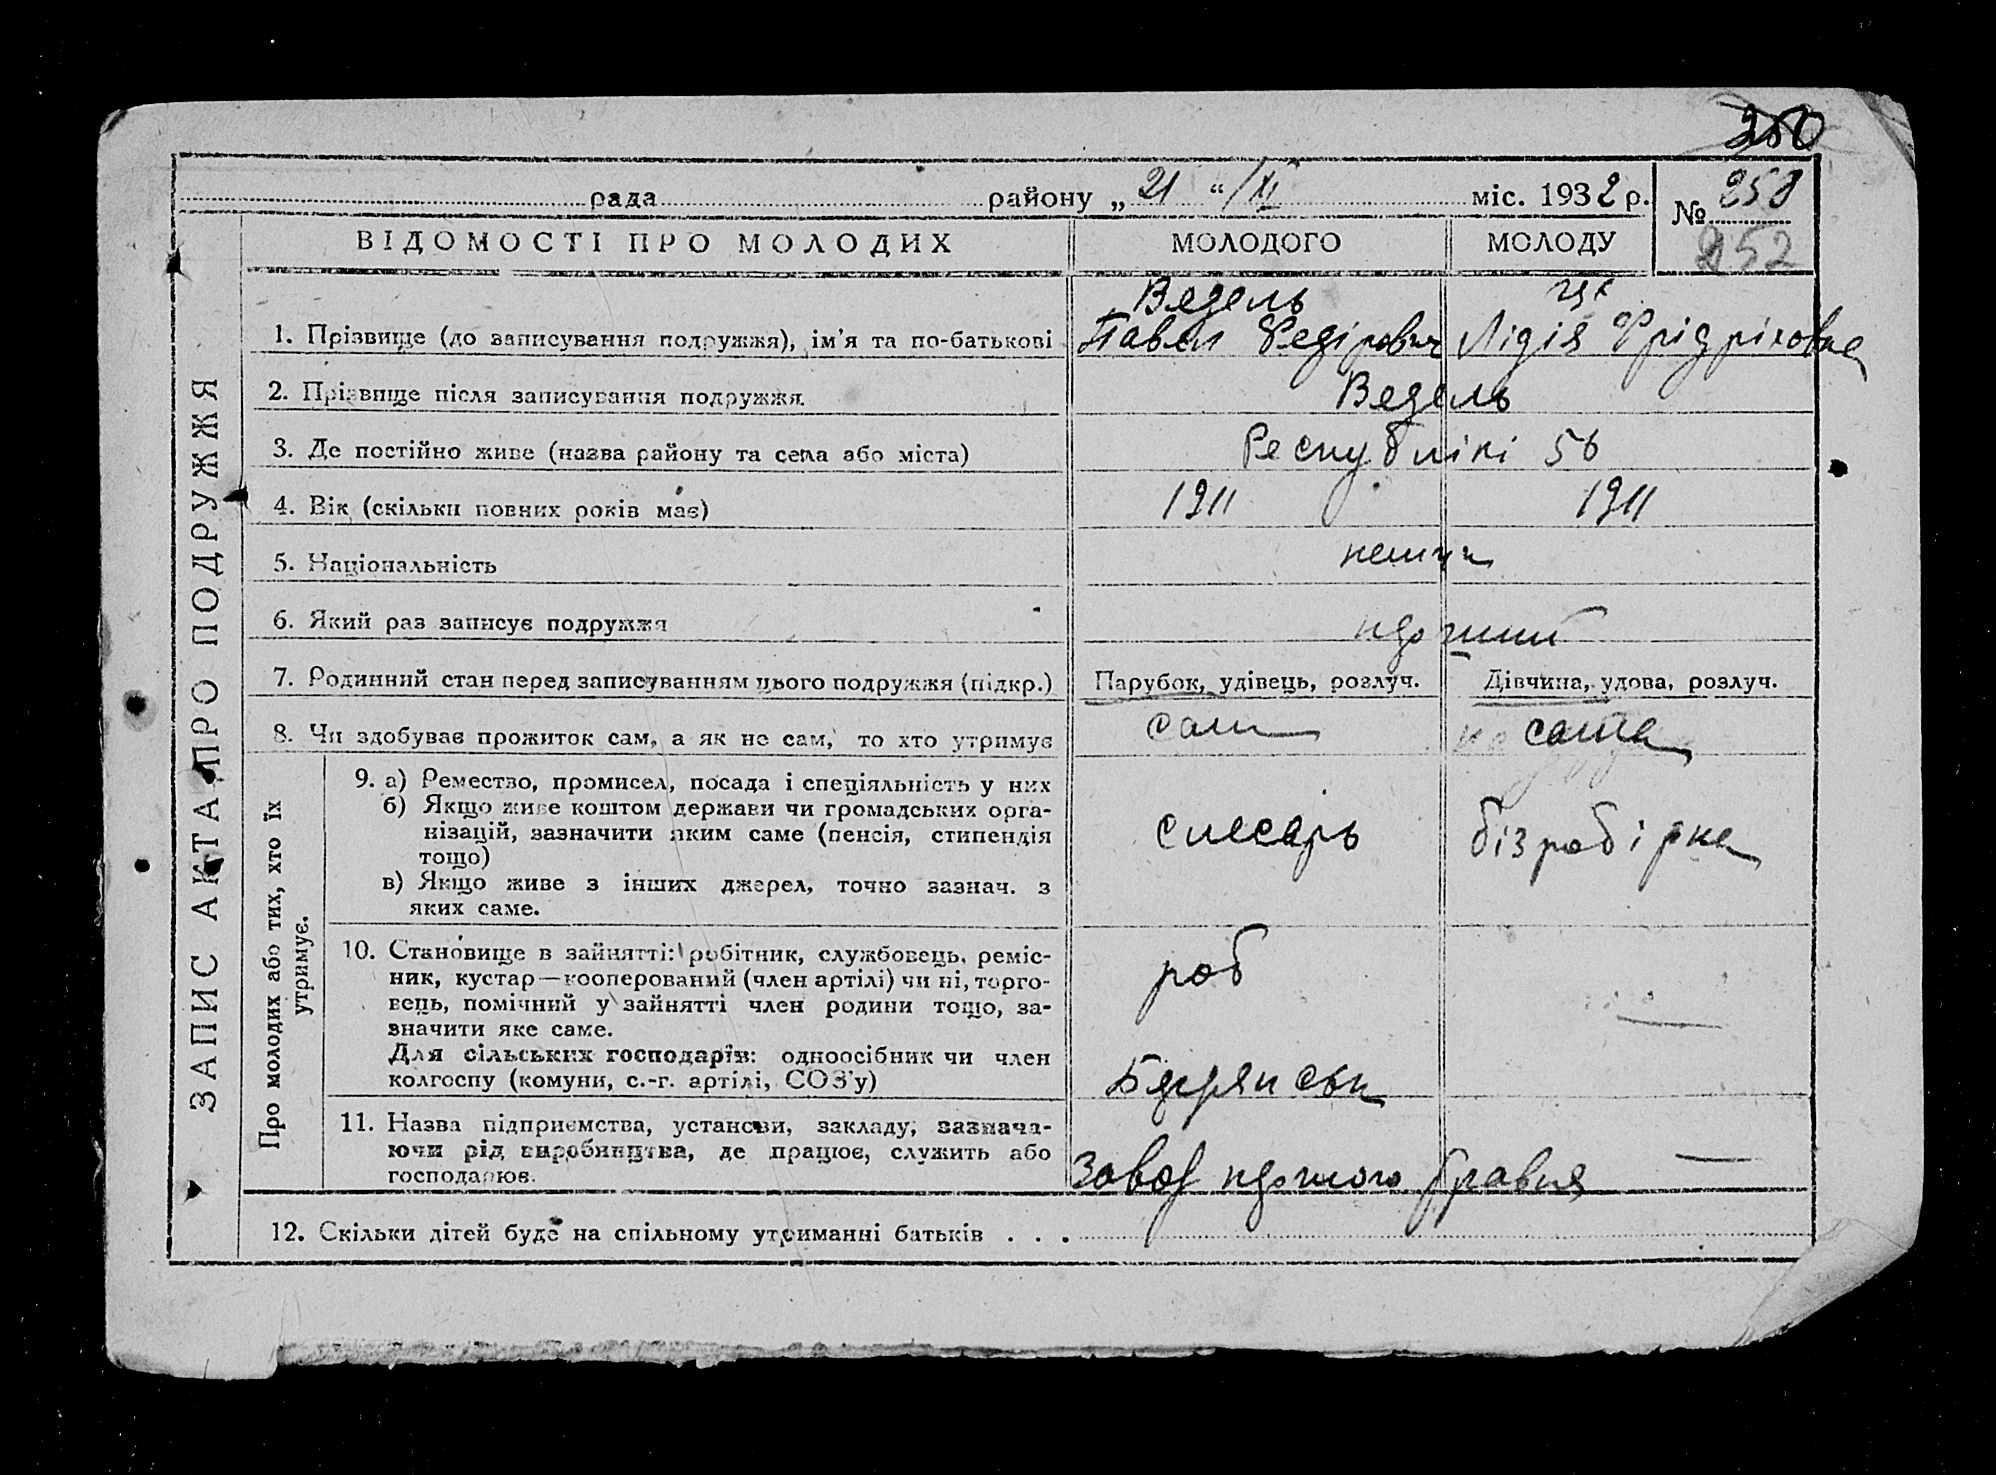 250
рада району „ 21 “ /XI міс. 1932 р.
№ 258
252
ЗАПИС АКТА ПРО ПОДРУЖЖЯ
ВІДОМОСТІ ПРО МОЛОДИХ МОЛОДОГО МОЛОДУ
Ведель
1. Прізвище (до записування подружжя), ім’я та по-батькові Павел Федірович Лідія Фрідріховна
2. Прізвище після записування подружжя. Ведель
3. Де постійно живе (назва району та села або міста) Республікі 56
4. Вік (скільки повних років має) 1911 1911
5. Національність немци
6. Який раз записує подружжя
7. Родинний стан перед записуванням цього подружжя (підкр.) Парубок, удівець, розлуч. Дівчина, удова, розлуч.
8. Чи здобуває прожиток сам, а як не сам, то хто утримує сам сама
Про молодих або тих, хто їх
утримує.
9. а) Ремество, промисел, посада і спеціяльність у них
б) Якщо живе коштом держави чи громадських орга-
нізацій, зазначити яким саме (пенсія, стипендія
тощо)
в) Якщо живе з інших джерел, точно зазнач. з
яких саме.
слесарь безробітна
10. Становище в зайнятті: робітник, службовець, реміс-
ник, кустар—кооперований (член артілі) чи ні, торго-
вець, помічний у зайнятті член родини тощо, за-
значити яке саме.
Для сільських господарів: одноосібник чи член
колгоспу (комуни, с.-г. артілі, СОЗ’у)
роб
11. Назва підприємства, установи, закладу, зазнача-
ючи рід виробництва, де працює, служить або
господарює.
Завод
12. Скільки дітей буде на спільному утриманні батьків . . .